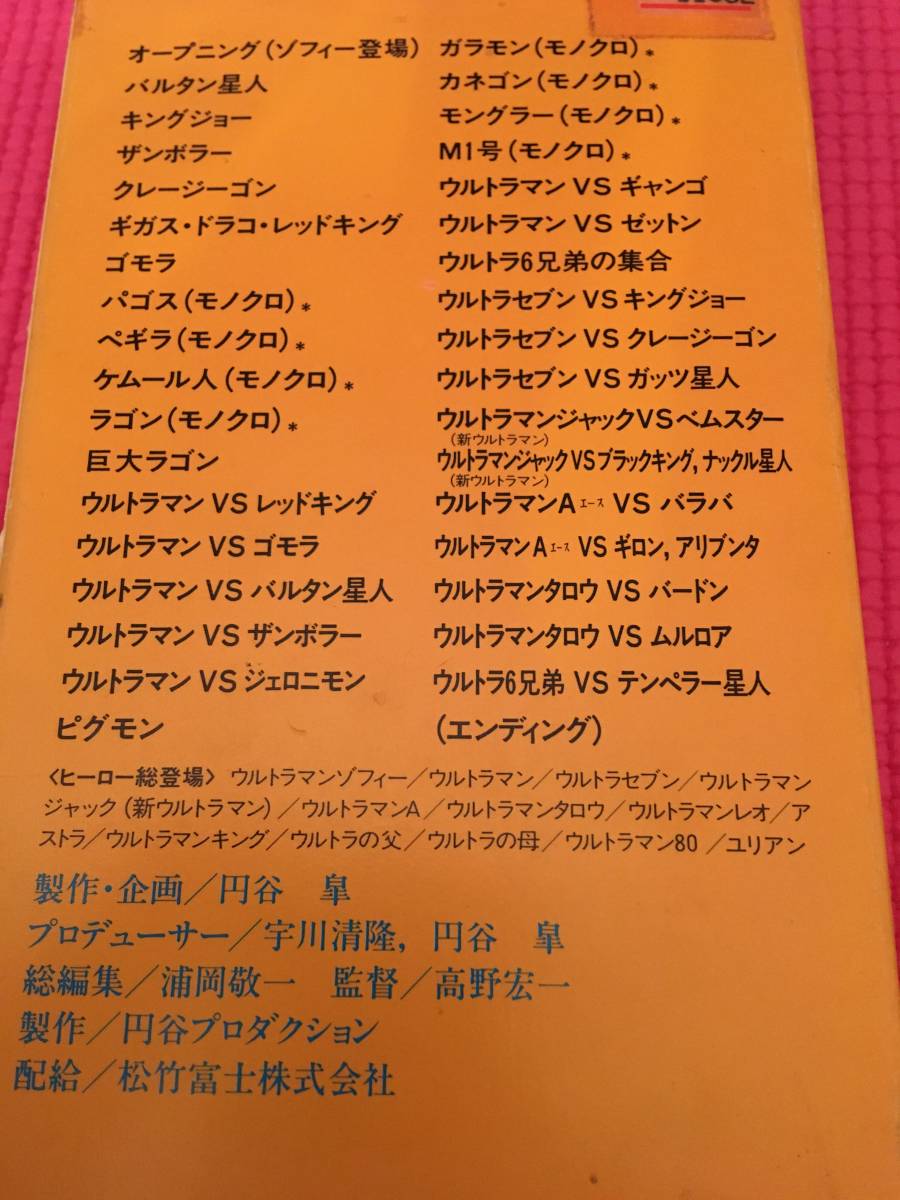 オープニング(ゾフィー登場)
バルタン星人
キングジョー
ザンボラー
クレージーゴン
ギガス・ドラコ・レッドキング
ゴモラ
パゴス(モノクロ)*
ペギラ(モノクロ)*
ケムール人(モノクロ)*
ラゴン(モノクロ)*
巨大ラゴン
ウルトラマン VS レッドキング
ウルトラマン VS ゴモラ
ウルトラマン VS バルタン星人
ウルトラマン VS ザンボラー
ウルトラマン VS ジェロニモン
ピグモン
ガラモン(モノクロ)*
カネゴン(モノクロ)*
モングラー(モノクロ)*
M1号(モノクロ)*
ウルトラマン VS ギャンゴ
ウルトラマン VS ゼットン
ウルトラ6兄弟の集合
ウルトラセブン VS キングジョー
ウルトラセブン VS クレージーゴン
ウルトラセブン VS ガッツ星人
ウルトラマンジャックVSベムスター
(新ウルトラマン)
ウルトラマンジャックVSブラックキング,ナックル星人
(新ウルトラマン)
ウルトラマンAエース VS バラバ
ウルトラマンAエース VS ギロン,アリブンタ
ウルトラマンタロウ VS バードン
ウルトラマンタロウ VS ムルロア
ウルトラ6兄弟 VS テンペラー星人
(エンディング)
〈ヒーロー総登場〉ウルトラマンゾフィー/ウルトラマン/ウルトラセブン/ウルトラマン
ジャック(新ウルトラマン)/ウルトラマンA/ウルトラマンタロウ/ウルトラマンレオ/ア
ストラ/ウルトラマンキング/ウルトラの父/ウルトラの母/ウルトラマン80/ユリアン
製作・企画/円谷 皐
プロデューサー/宇川清隆,円谷 皐
総編集/浦岡敬一 監督/高野宏一
製作/円谷プロダクション
配給/松竹富士株式会社